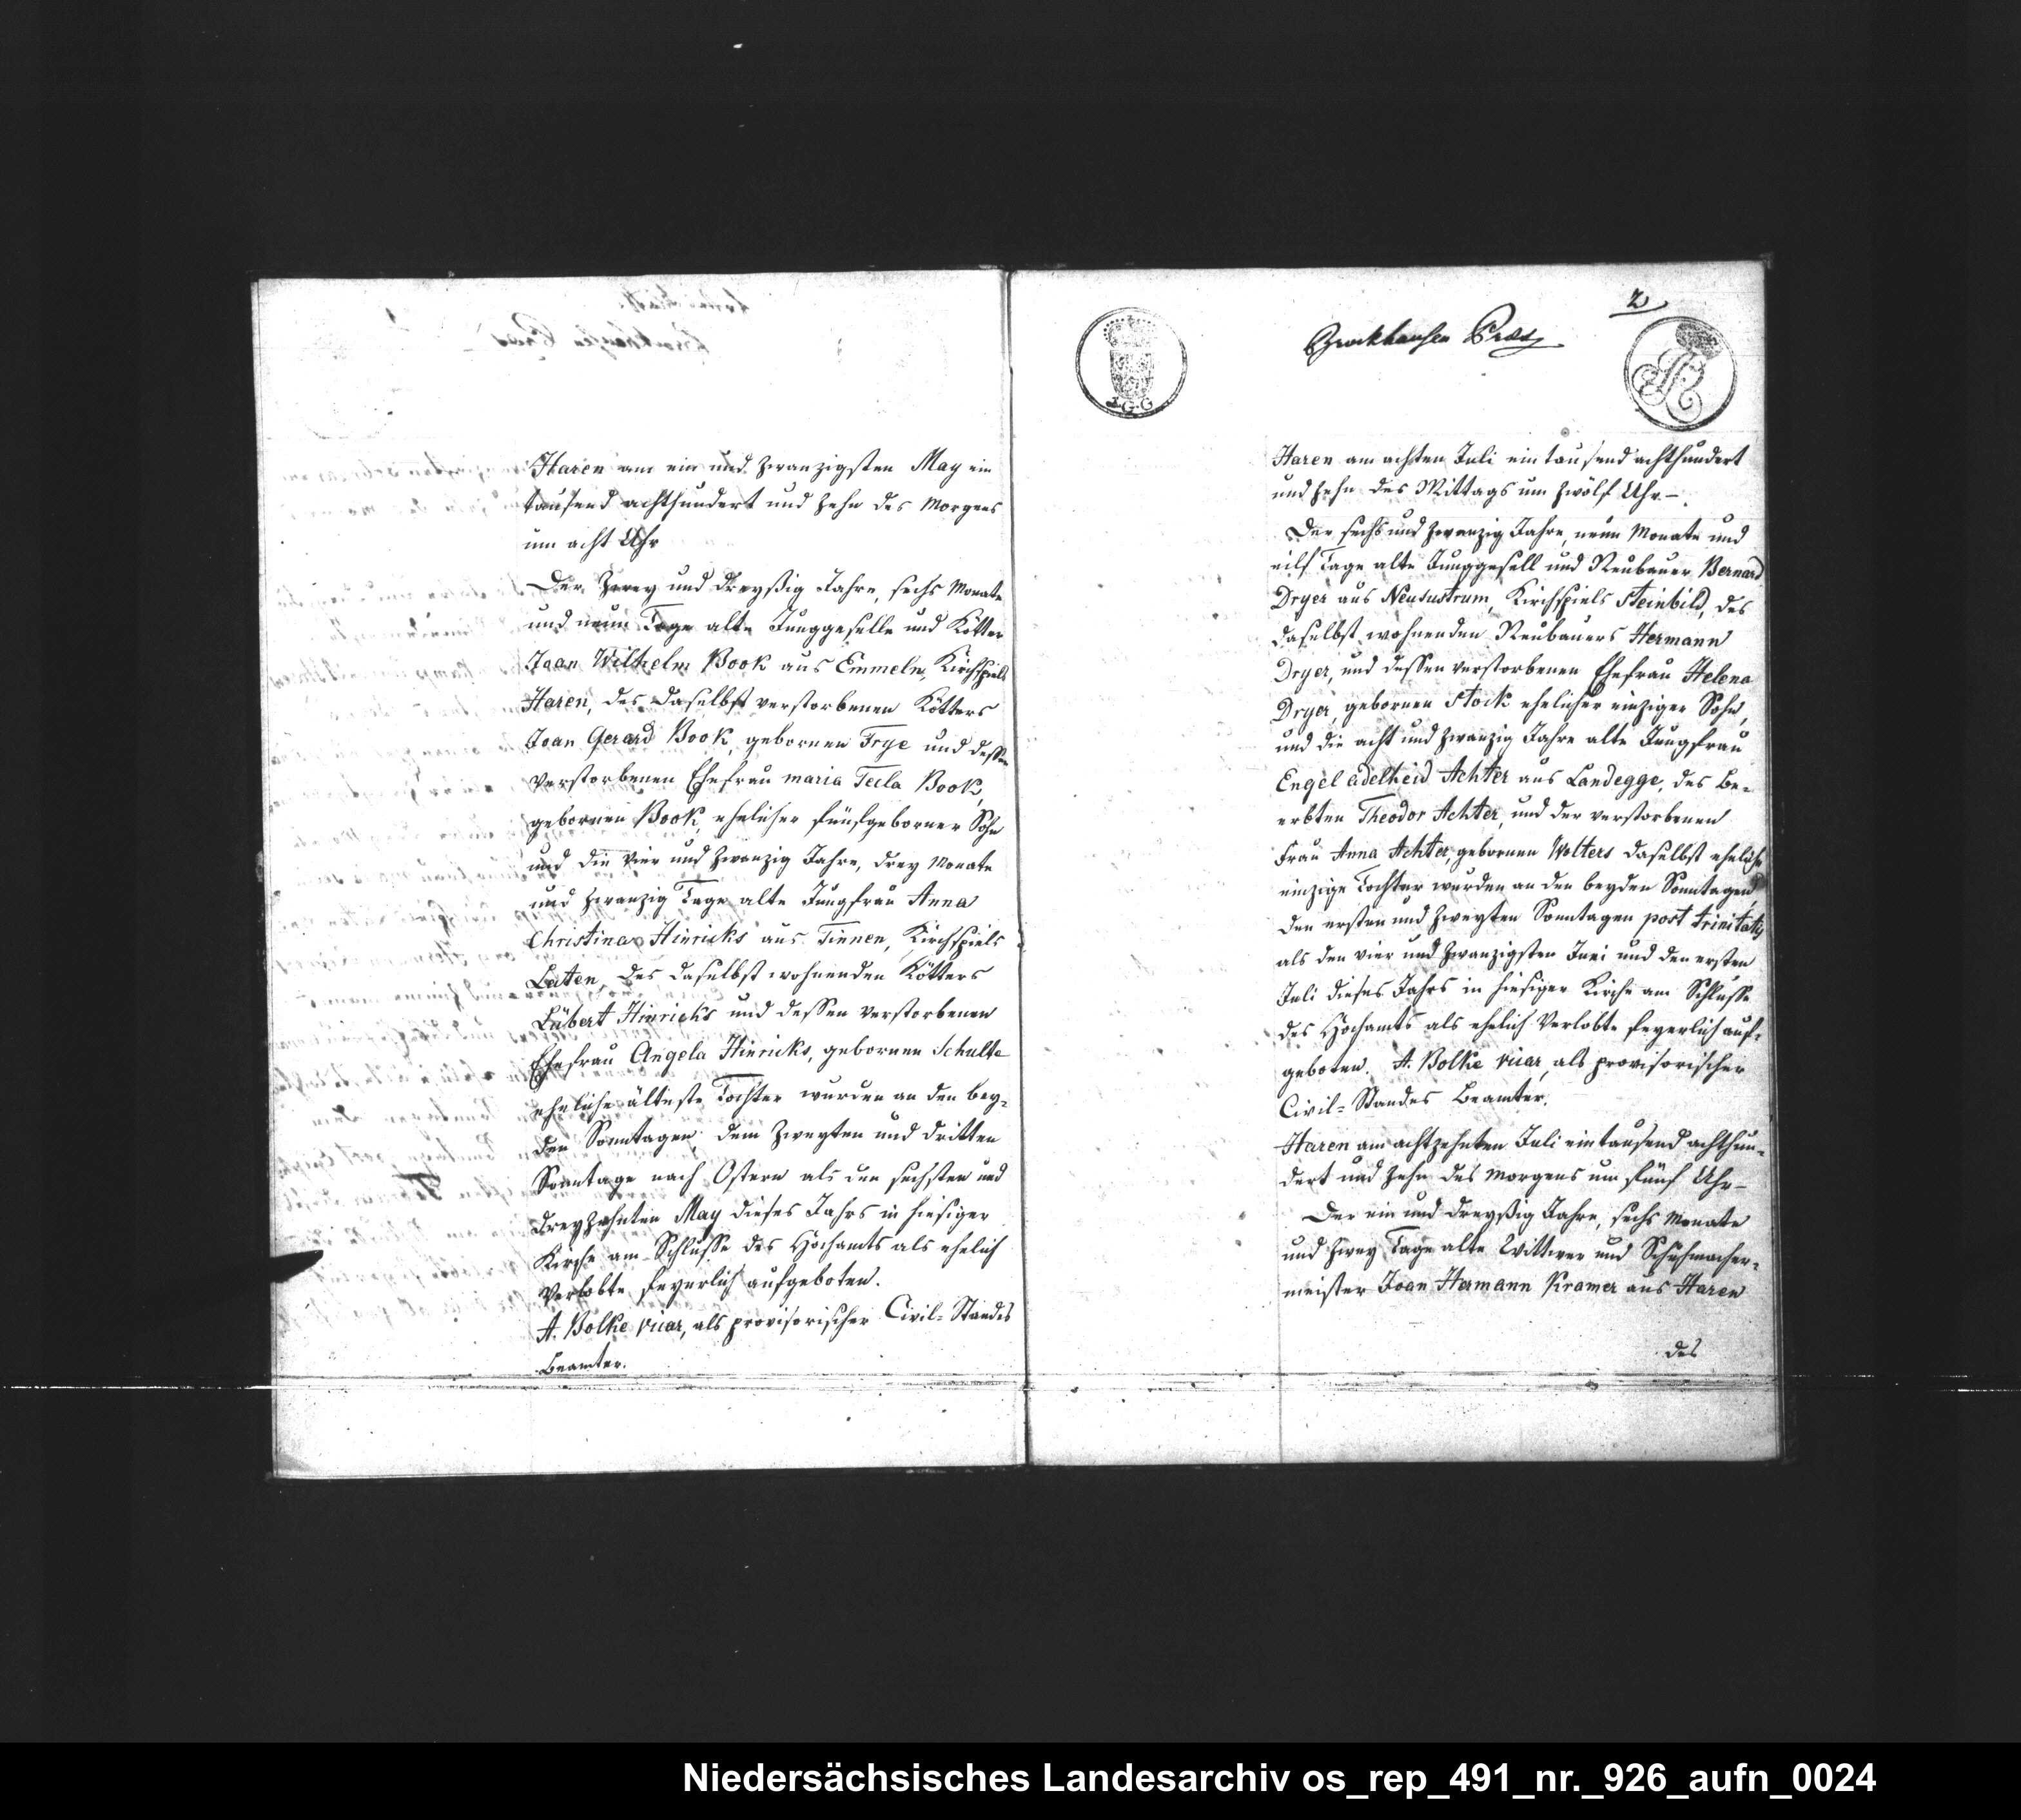 Haren am ein und zwanzigsten May ein
tausend achthundert und zehn des Morgens
um acht Uhr
Der zwey und dreyßig Jahre, sechs Monate
und neun Tage alte Junggeselle und Kötter
Joan Wilhelm Book aus Emmeln, Kirchspiels
Haren, des daselbst verstorbenen Kötters
Joan Gerard Book, gebornen Frye und dessen
verstorbenen Ehefrau maria Tecla Book,
gebornen Book, ehelicher fünfgeborner Sohn
und die vier und zwanzig Jahre, drey Monate
und zwanzig Tage alte Jungfrau Anna
Christina Hinricks aus Tinnen, Kirchspiels
Laten, des daselbst wohnenden Kötters
Lübert Hinricks und dessen verstorbenen
Ehefrau Angela Hinricks, gebornen Schulte
eheliche älteste Tochter wurden an den bey-
den Sonntagen dem zweyten und dritten
Sonntage nach Ostern als den sechsten und
dreyzehnten May dieses Jahrs in hiesiger
Kirche am Schlusse des Hochamts als ehelich
Verlobte feyerlich aufgeboten.
A. Bolke vicar, als provisorischer Civil-Standes
Beamter.
2
Brockhausen Præs
2 G.G
Haren am achten Juli ein tausend achthundert
und zehn des Mittags um zwölf Uhr –
Der sechs und zwanzig Jahre, neun Monate und
eilf Tage alte Junggesell und Neubauer Bernard
Dryer aus Neusustrum, Kirchspiels Steinbild, des
daselbst wohnenden Neubauers Hermann
Dryer, und dessen verstorbenen Ehefrau Helena
Dryer, gebornen Stock ehelicher einziger Sohn,
und die acht und zwanzig Jahre alte Jungfrau
Engel adelheid Achter aus Landegge, des Be-
erbten Theodor Achter, und der verstorbenen
Frau Anna Achter, gebornen Wolters daselbst eheliche
einzige Tochter wurden an den beyden Sonntagen,
den ersten und zweyten Sonntagen post trinitatis
als den vier und zwanzigsten Juni und den ersten
Juli dieses Jahrs in hiesiger Kirche am Schlusse
des Hochamts als ehelich Verlobte feyerlich auf-
geboten. A. Bolke vicar, als provisorischer
Civil-Standes Beamter.
Haren am achtzehnten Juli ein tausend achthun-
dert und zehn des Morgens um fünf Uhr –
Der ein und dreyßig Jahre, sechs Monate
und zwey Tage alte Wittwer und Schuhmacher-
meister Joan Hermann Kramer aus Haren
des
Niedersächsisches Landesarchiv os_rep_491_nr._926_aufn_0024